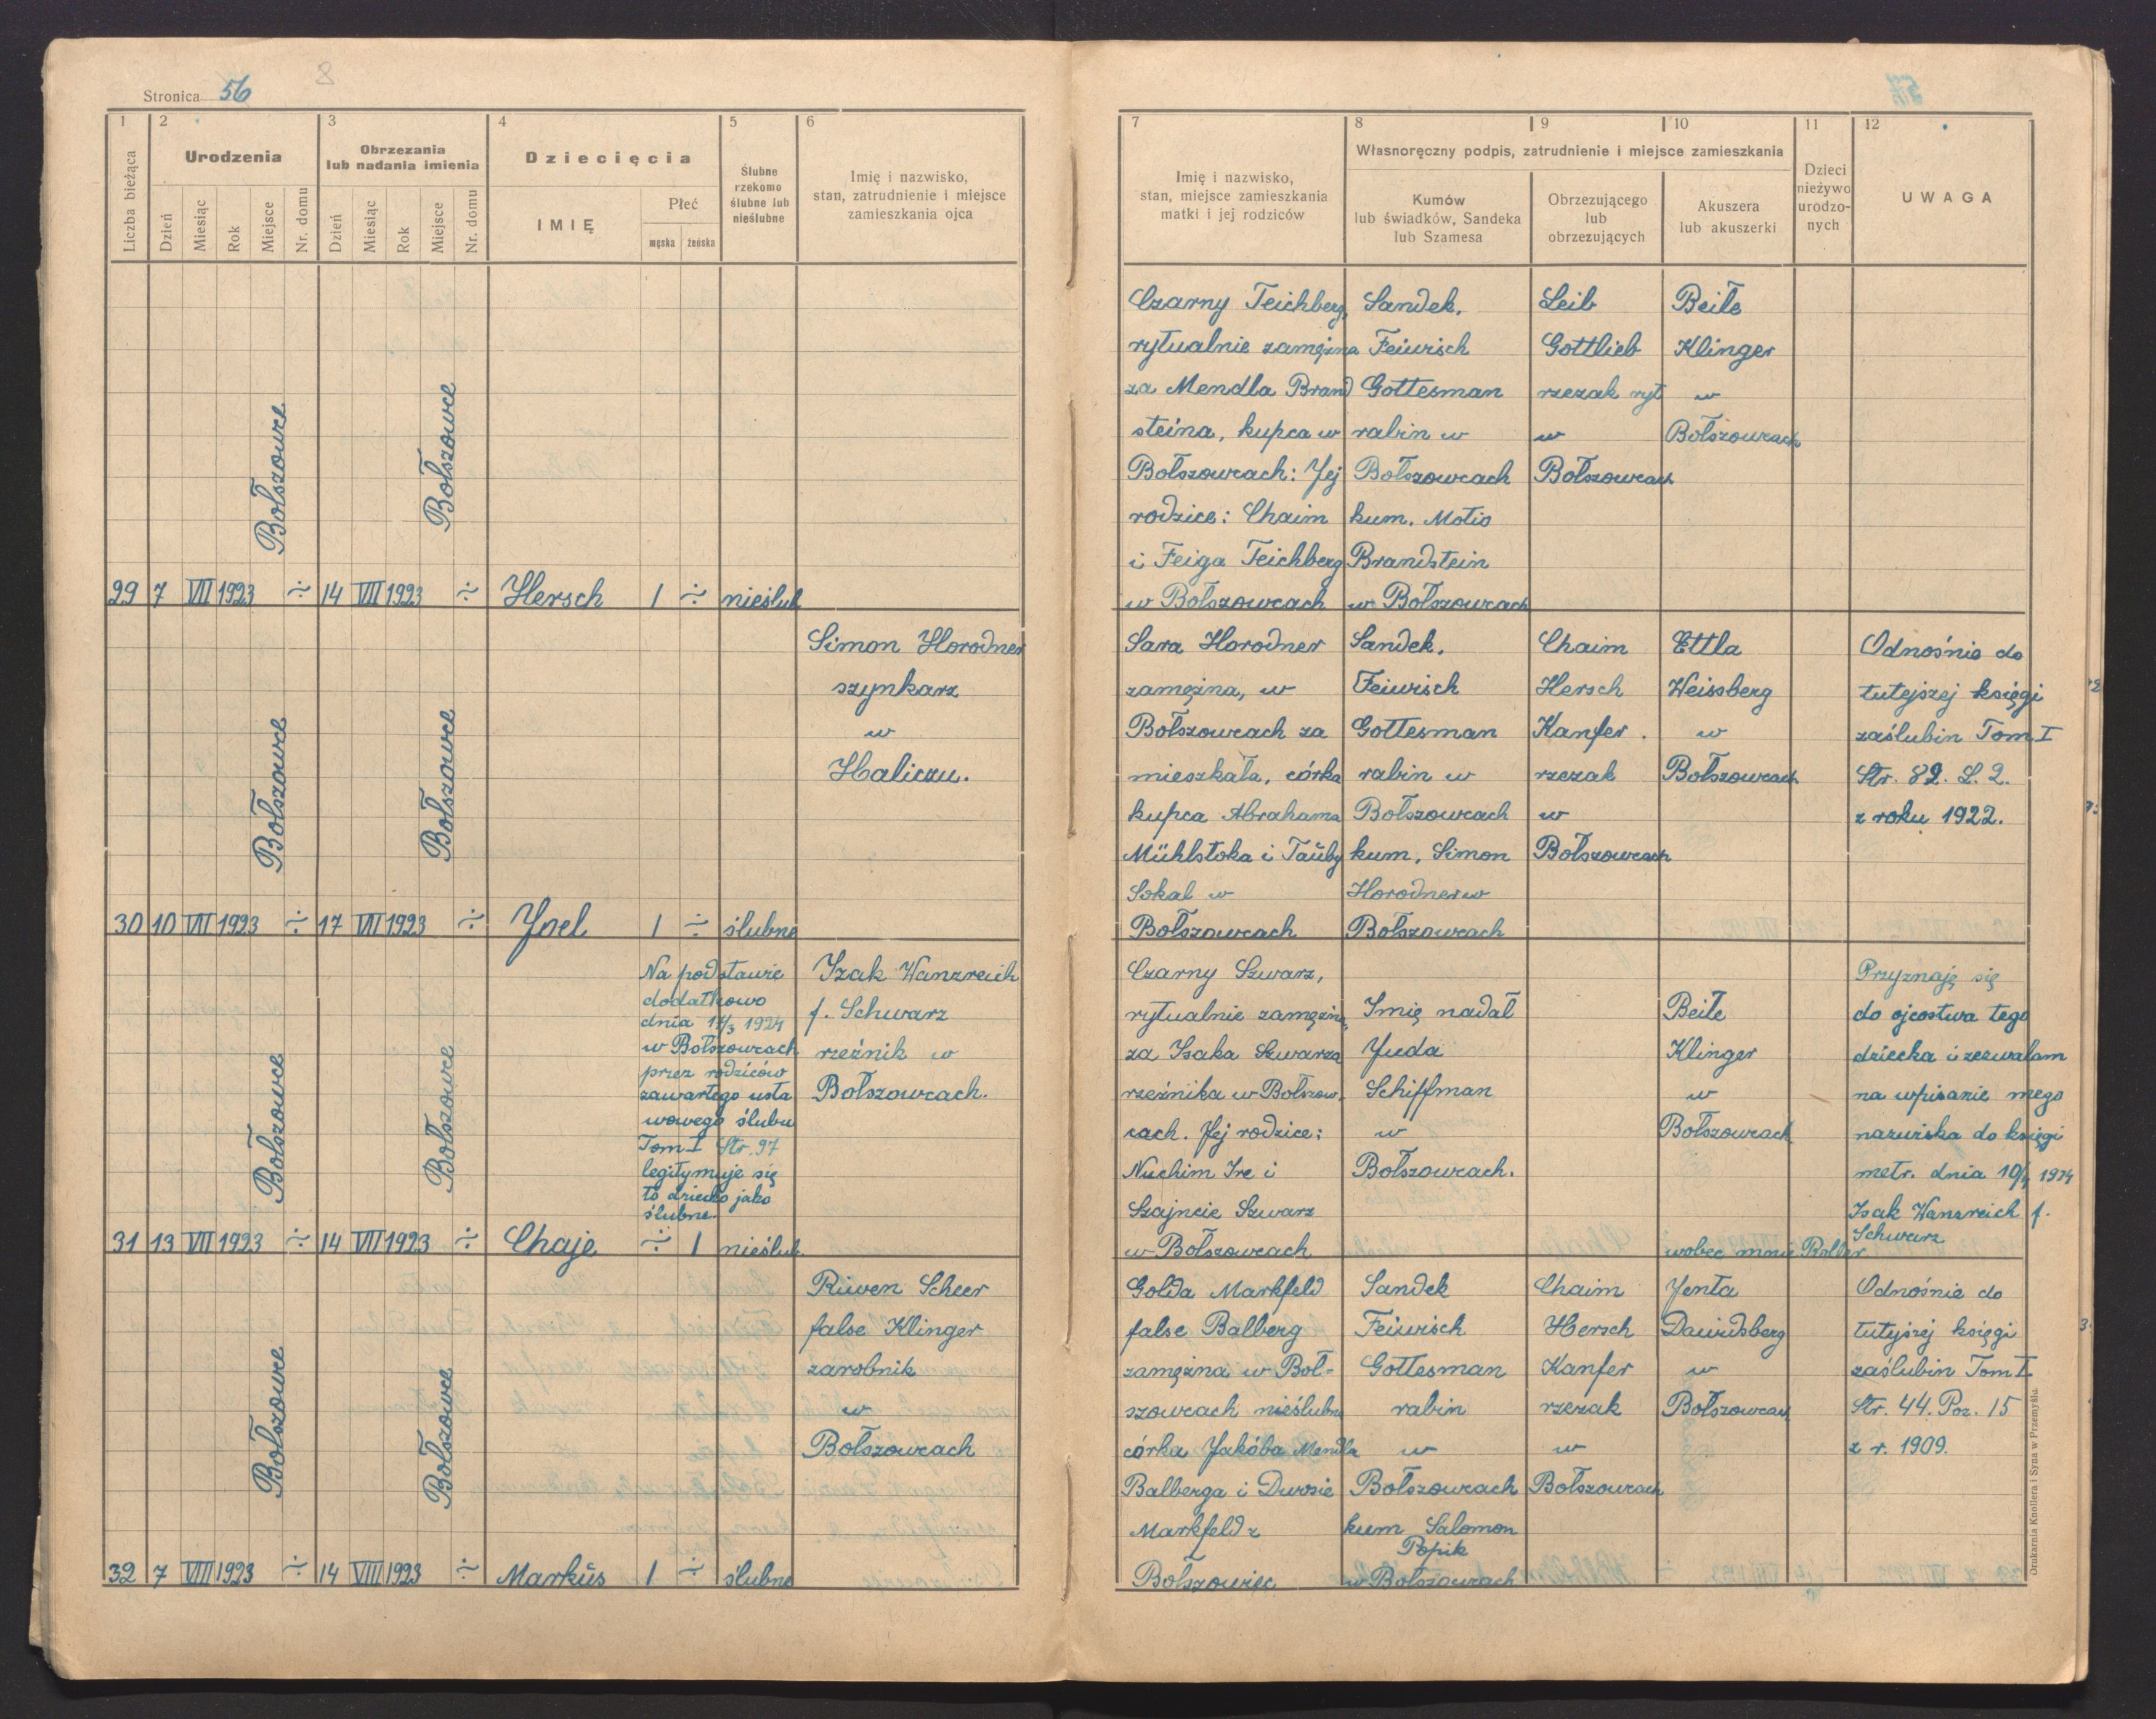 Stronica 56
8
1 2 3 4 5 6
Liczba bieżąca
Urodzenia
Obrzezania
lub nadania imienia
Dziecięcia
Ślubne
rzekomo
ślubne lub
nieślubne
Imię i nazwisko,
stan, zatrudnienie i miejsce
zamieszkania ojca
Dzień Miesiąc Rok Miejsce Nr. domu
Dzień Miesiąc Rok Miejsce Nr. domu
IMIĘ
Płeć
męska żeńska
Bołszowce Bołszowce
29 7 VII 1923 ÷ 14 VII 1923 ÷ Hersch 1 ÷ nieślub
Simon Horodner
szynkarz
w
Haliczu.
Bołszowce Bołszowce
30 10 VII 1923 ÷ 17 VII 1923 ÷ Joel 1 ÷ ślubne
Na podstawie
dodatkowo
dnia 17/3 1924
w Bołszowcach
przez rodziców
zawartego usta
wowego ślubu
Tom I Str. 97
legitymuje się
to dziecko jako
ślubne.
Izak Wanzreich
f. Schwarz
rzeźnik w
Bołszowcach.
Bołszowce Bołszowce
31 13 VII 1923 ÷ 14 VII 1923 ÷ Chaje ÷ 1 nieślub.
Riwen Scheer
false Klinger
zarobnik
w
Bołszowcach
Bołszowce Bołszowce
32 7 VIII 1923 ÷ 14 VIII 1923 ÷ Markus 1 ÷ ślubne
57
7 8 9 10 11 12
Imię i nazwisko,
stan, miejsce zamieszkania
matki i jej rodziców
Własnoręczny podpis, zatrudnienie i miejsce zamieszkania
Kumów
lub świadków, Sandeka
lub Szamesa
Obrzezującego
lub
obrzezujących
Akuszera
lub akuszerki
Dzieci
nieżywo
urodzo-
nych
UWAGA
Czarny Teichberg,
rytualnie zamężna
za Mendla Brand
steina, kupca w
Bołszowcach: Jej
rodzice: Chaim
i Feiga Teichberg
w Bołszowcach
Sandek.
Feiwisch
Gottesman
rabin w
Bołszowcach
kum. Motio
Brandstein
w Bołszowcach
Leib
Gottlieb
rzezak ryt
w
Bołszowcach
Beile
Klinger
w
Bołszowcach
Sara Horodner
zamężna, w
Bołszowcach za
mieszkała, córka
kupca Abrahama
Mühlstoka i Tauby
Sokal w
Bołszowcach
Sandek.
Feiwisch
Gottesman
rabin w
Bołszowcach
kum, Simon
Horodner w
Bołszowcach
Chaim
Hersch
Kanfer.
rzezak
w
Bołszowcach
Ettla
Weissberg
w
Bołszowcach
Odnośnie do
tutejszej księgi
zaślubin Tom I
Str. 82. L. 2.
z roku 1922.
Czarny Szwarz,
rytualnie zamężna,
za Isaka Szwarza
rzeźnika w Bołszow.
cach. Jej rodzice:
Nuchim Ire i
Szajncie Szwarz
w Bołszowcach
Imię nadał
Juda
Schiffman
w
Bołszowcach.
Beile
Klinger
w
Bołszowcach
wobec mnie Roller
Przyznaję się
do ojcostwa tego
dziecka i zezwalam
na wpisanie mego
nazwiska do księgi
metr. dnia 10/4 1924
Isak Wanzreich f.
Schwarz
Golda Markfeld
false Balberg
zamężna w Boł-
szowcach nieślubna
córka Jakóba Mendla
Balberga i Dwosie
Markfeld z
Bołszowiec
Sandek
Feiwisch
Gottesman
rabin
w
Bołszowcach
kum Salomon
Popik
w Bołszowcach
Chaim
Hersch
Kanfer
rzezak
w
Bołszowcach
Jenta
Dawidsberg
w
Bołszowcach
Odnośnie do
tutejszej księgi
zaślubin Tom I
Str. 44. Poz. 15
z r. 1909.
Drukarnia Knollera i Syna w Przemyślu.